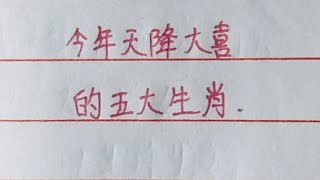 今年天降大喜
的五大生肖.